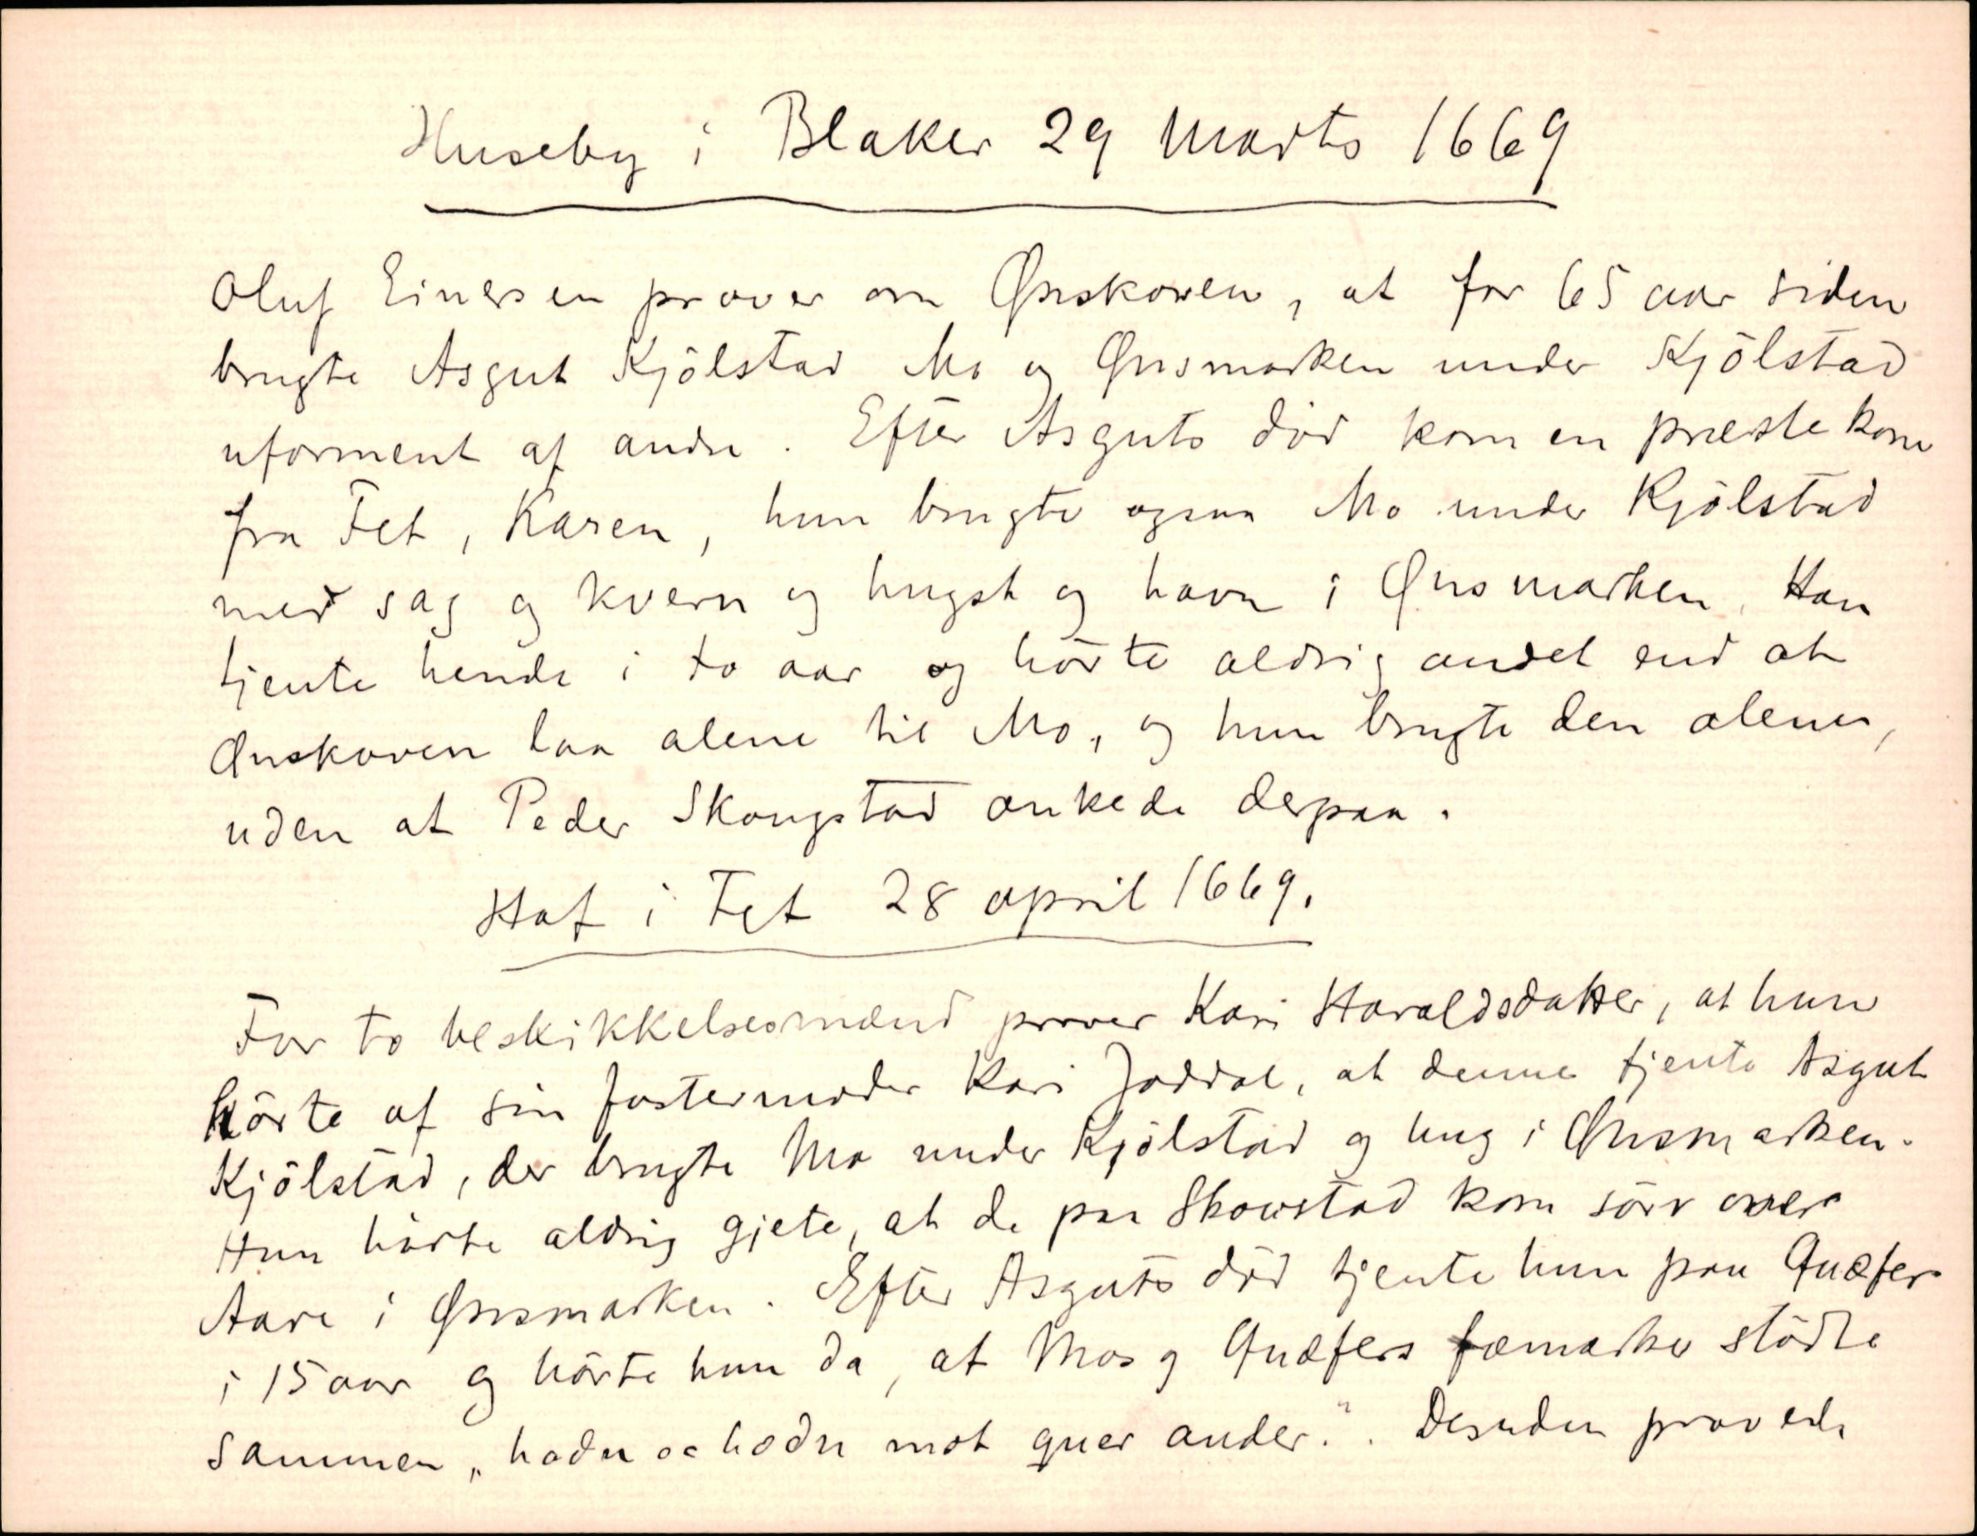 Huseby i Blaker 29 Marts 1669
Oluf Einersen prover om Ønskoven, at for 65 aar siden
brugte Asgut Kjölstad Mo og Ønsmarken under Kjölstad
uforment af andre. Efter Asguts död kom en præstekone
fra Fet, Karen, hun brugte ogsaa Mo under Kjölstad
med sag og kvern og hugst og havn i Ønsmarken. Han
tjente hende i to aar og hörte aldrig andet end at
Ønskoven laa alene til Mo, og hun brugte den alene,
uden at Peder Skougstad ankede derpaa.
Haf i Fet 28 april 1669.
For to beskikkelsesmænd prover Kari Haraldsdatter, at hun
hörte af sin fostermoder Kari Joddal, at denne tjente Asgut
Kjölstad, der brugte Mo under Kjölstad og hug i Ønsmarken.
Hun hörte aldrig gjete, at de paa Skowstad kom sörr over
Aare i Ønsmarken. Efter Asguts död tjente hun paa Quæfer
i 15 aar og hörte hun da, at Mos og Quæfers fæmarker stödte
sammen „hodn oc hodn mot quer ander.“. Desuden provede